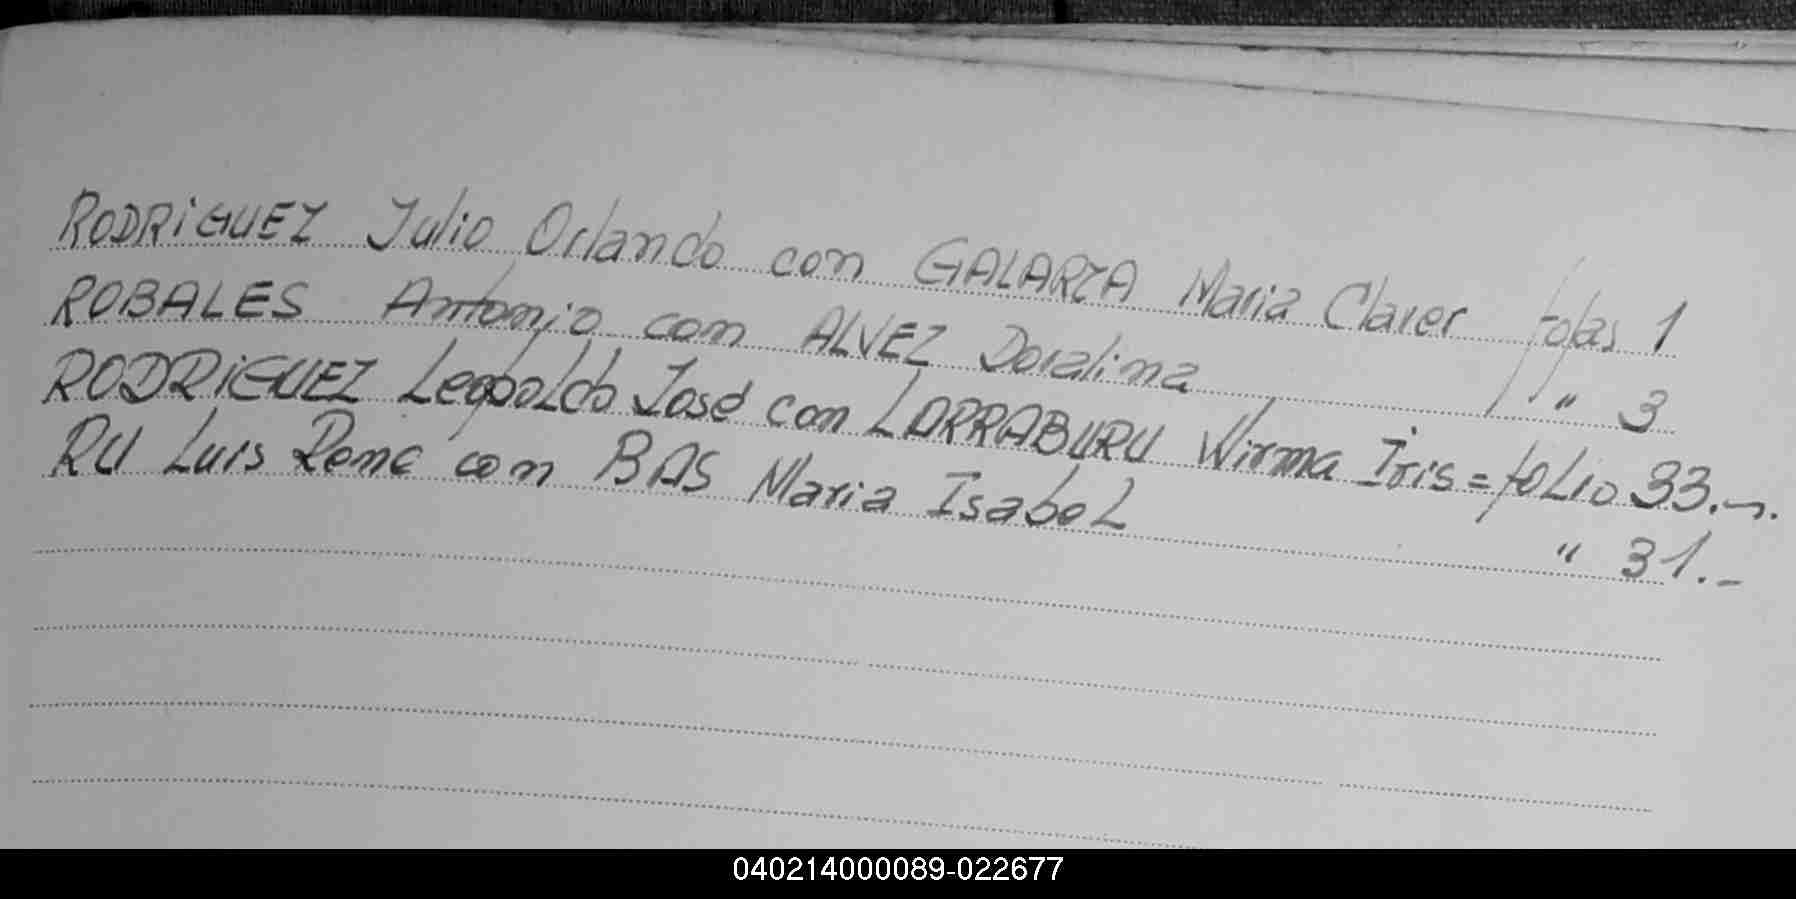 RODRIGUEZ Julio Orlando con GALARZA Maria Claver fojas 1
ROBALES Antonio con ALVEZ Doralima " 3
RODRIGUEZ Leopoldo José con LARRABURU Wirma Iris = folio 33.-.
RU Luis Rene con BAS Maria Isabel " 31.-
040214000089-022677